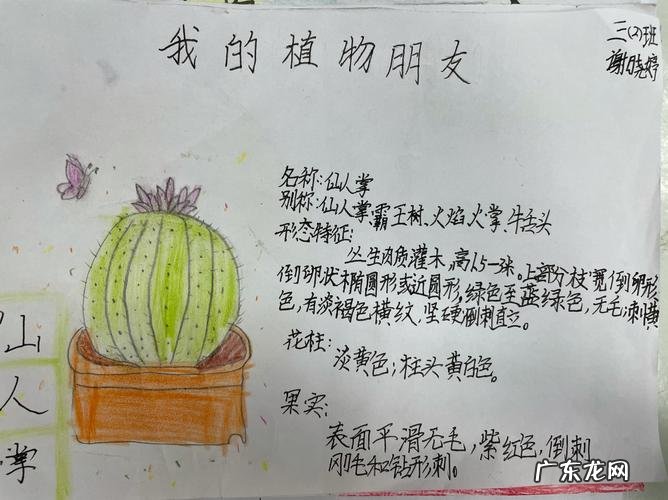 我的植物朋友
三(2)班
谢晓婷
名称:仙人掌
别称:仙人掌、霸王树、火焰、火掌、牛舌头
形态特征:
丛生肉质灌木,高1.5一米。上部分枝宽倒卵形
倒卵状椭圆形或近圆形,绿色至蓝绿色,无毛,刺黄
色,有淡褐色横纹、坚硬倒刺直立。
花柱:
淡黄色;柱头黄白色。
果实:
表面平滑无毛,紫红色,倒刺
刚毛和钻形刺。
仙
人
掌
广东龙网